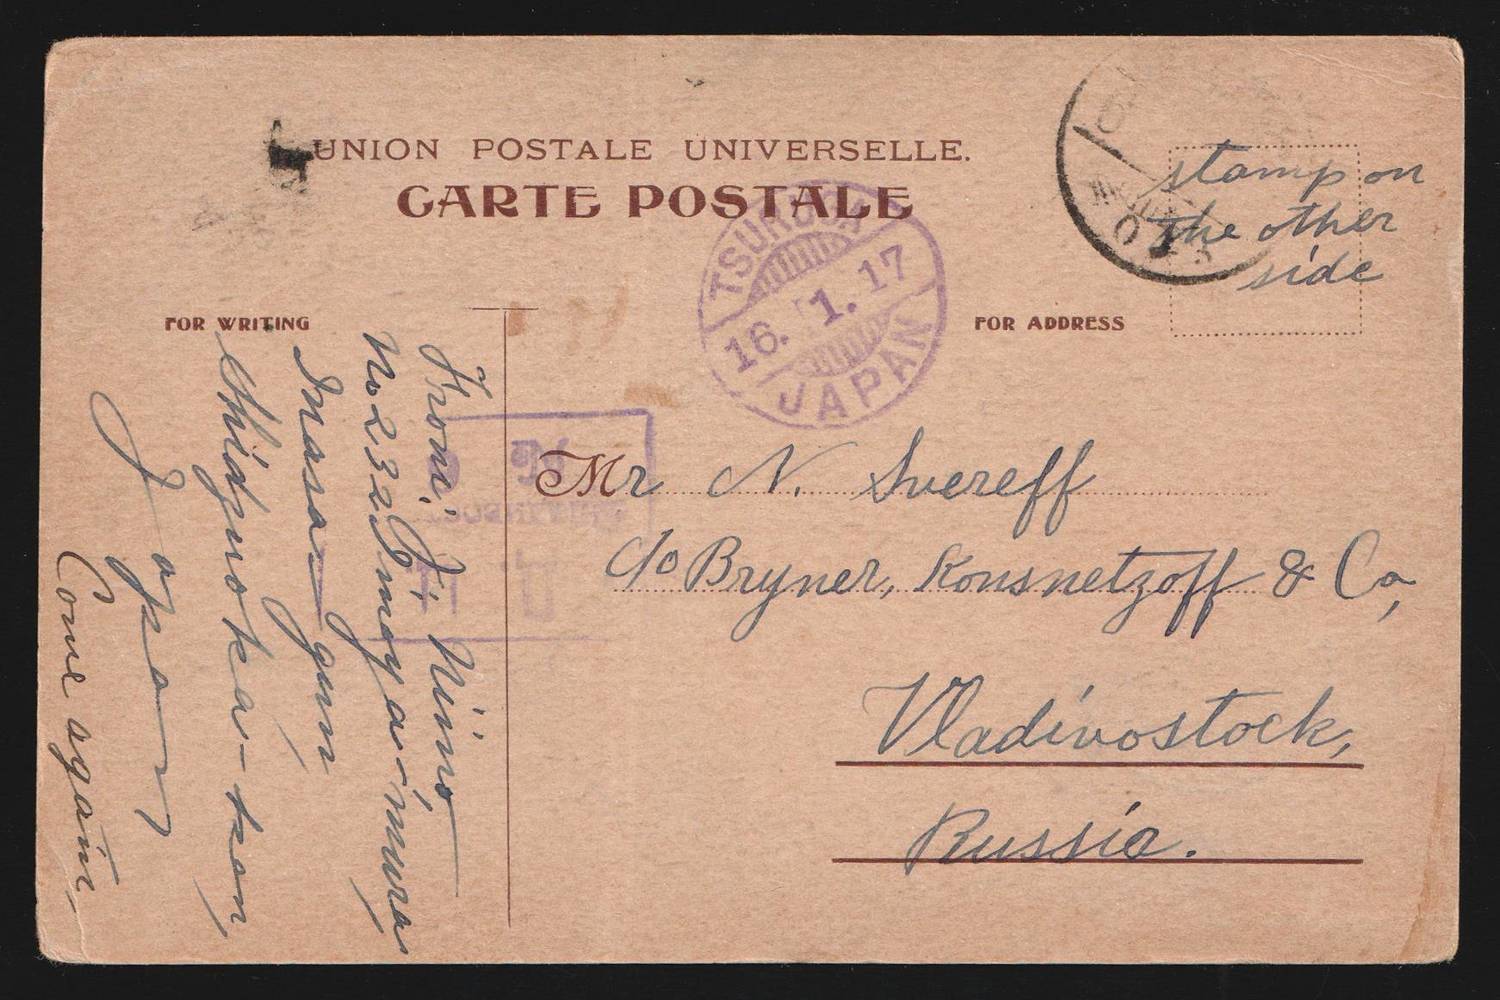 UNION POSTALE UNIVERSELLE.
CARTE POSTALE
stamp on
the other
side
TSURUGA
16. 1. 17
JAPAN
FOR WRITING
FOR ADDRESS
Mr N. Svereff
c/o Bryner, Kousnetzoff & Co,
Vladivostock,
Russia.
From: J. Niino
No 232
Inasa-gun
Shidzuoka-ken,
Japan
Come again,